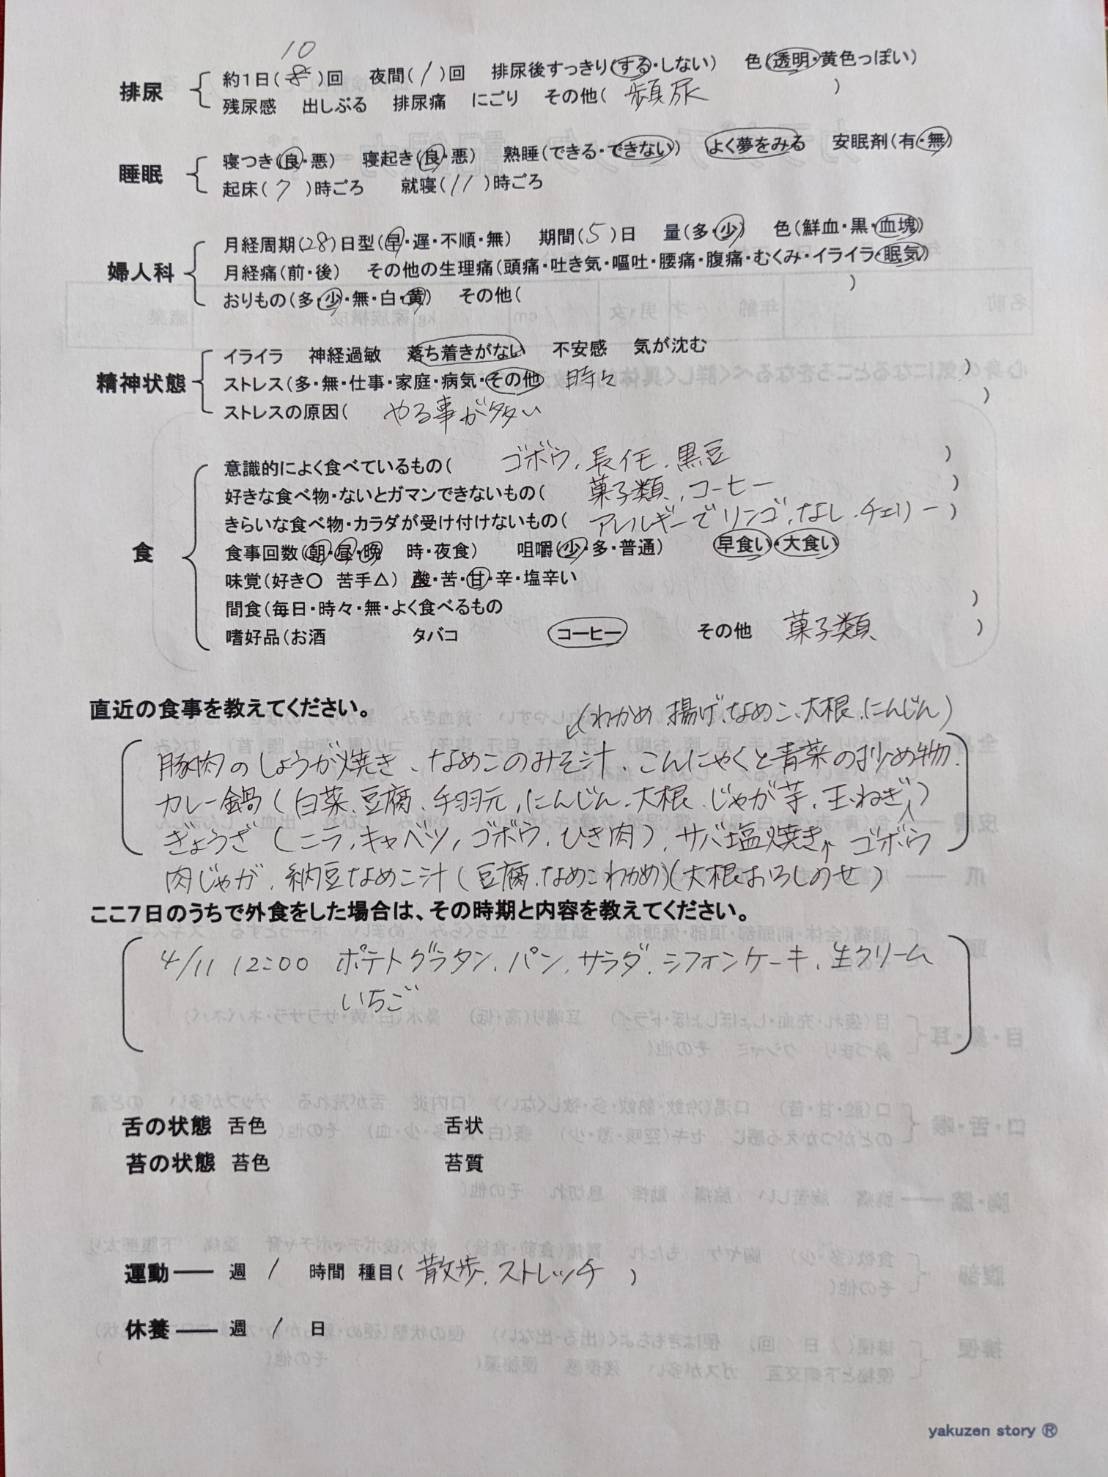 10
排尿 約1日( 8 )回 夜間( 1 )回 排尿後すっきり(する・しない) 色(透明・黄色っぽい)
残尿感 出しぶる 排尿痛 にごり その他( 頻尿 )
睡眠 寝つき(良・悪) 寝起き(良・悪) 熟睡(できる・できない) よく夢をみる 安眠剤(有・無)
起床( 7 )時ごろ 就寝( 11 )時ごろ
婦人科 月経周期(28)日型(早・遅・不順・無) 期間( 5 )日 量(多・少) 色(鮮血・黒・血塊)
月経痛(前・後) その他の生理痛(頭痛・吐き気・嘔吐・腰痛・腹痛・むくみ・イライラ・眠気)
おりもの(多・少・無・白・黄) その他( )
精神状態 イライラ 神経過敏 落ち着きがない 不安感 気が沈む
ストレス(多・無・仕事・家庭・病気・その他 時々 )
ストレスの原因( やる事が多い )
食 意識的によく食べているもの( ゴボウ、長イモ、黒豆 )
好きな食べ物・ないとガマンできないもの( 菓子類、コーヒー )
きらいな食べ物・カラダが受け付けないもの( アレルギーでリンゴ、なし、チェリー )
食事回数(朝・昼・晩 時・夜食) 咀嚼(少・多・普通) 早食い・大食い
味覚(好き○ 苦手△) 酸・苦・甘・辛・塩辛い
間食(毎日・時々・無・よく食べるもの )
嗜好品(お酒 タバコ コーヒー その他 菓子類 )
直近の食事を教えてください。
(わかめ、揚げ、なめこ、大根、にんじん)
豚肉のしょうが焼き、なめこのみそ汁、こんにゃくと青菜の炒め物、
カレー鍋(白菜、豆腐、手羽元、にんじん、大根、じゃが芋、玉ねぎ)
ぎょうざ(ニラ、キャベツ、ゴボウ、ひき肉)、サバ塩焼き、 ゴボウ
肉じゃが、納豆なめこ汁(豆腐、なめこ、わかめ)(大根おろしのせ)
ここ7日のうちで外食をした場合は、その時期と内容を教えてください。
4/11 12:00 ポテトグラタン、パン、サラダ、シフォンケーキ、生クリーム
いちご
舌の状態 舌色 舌状
苔の状態 苔色 苔質
運動── 週 / 時間 種目( 散歩、ストレッチ )
休養── 週 / 日
yakuzen story ®